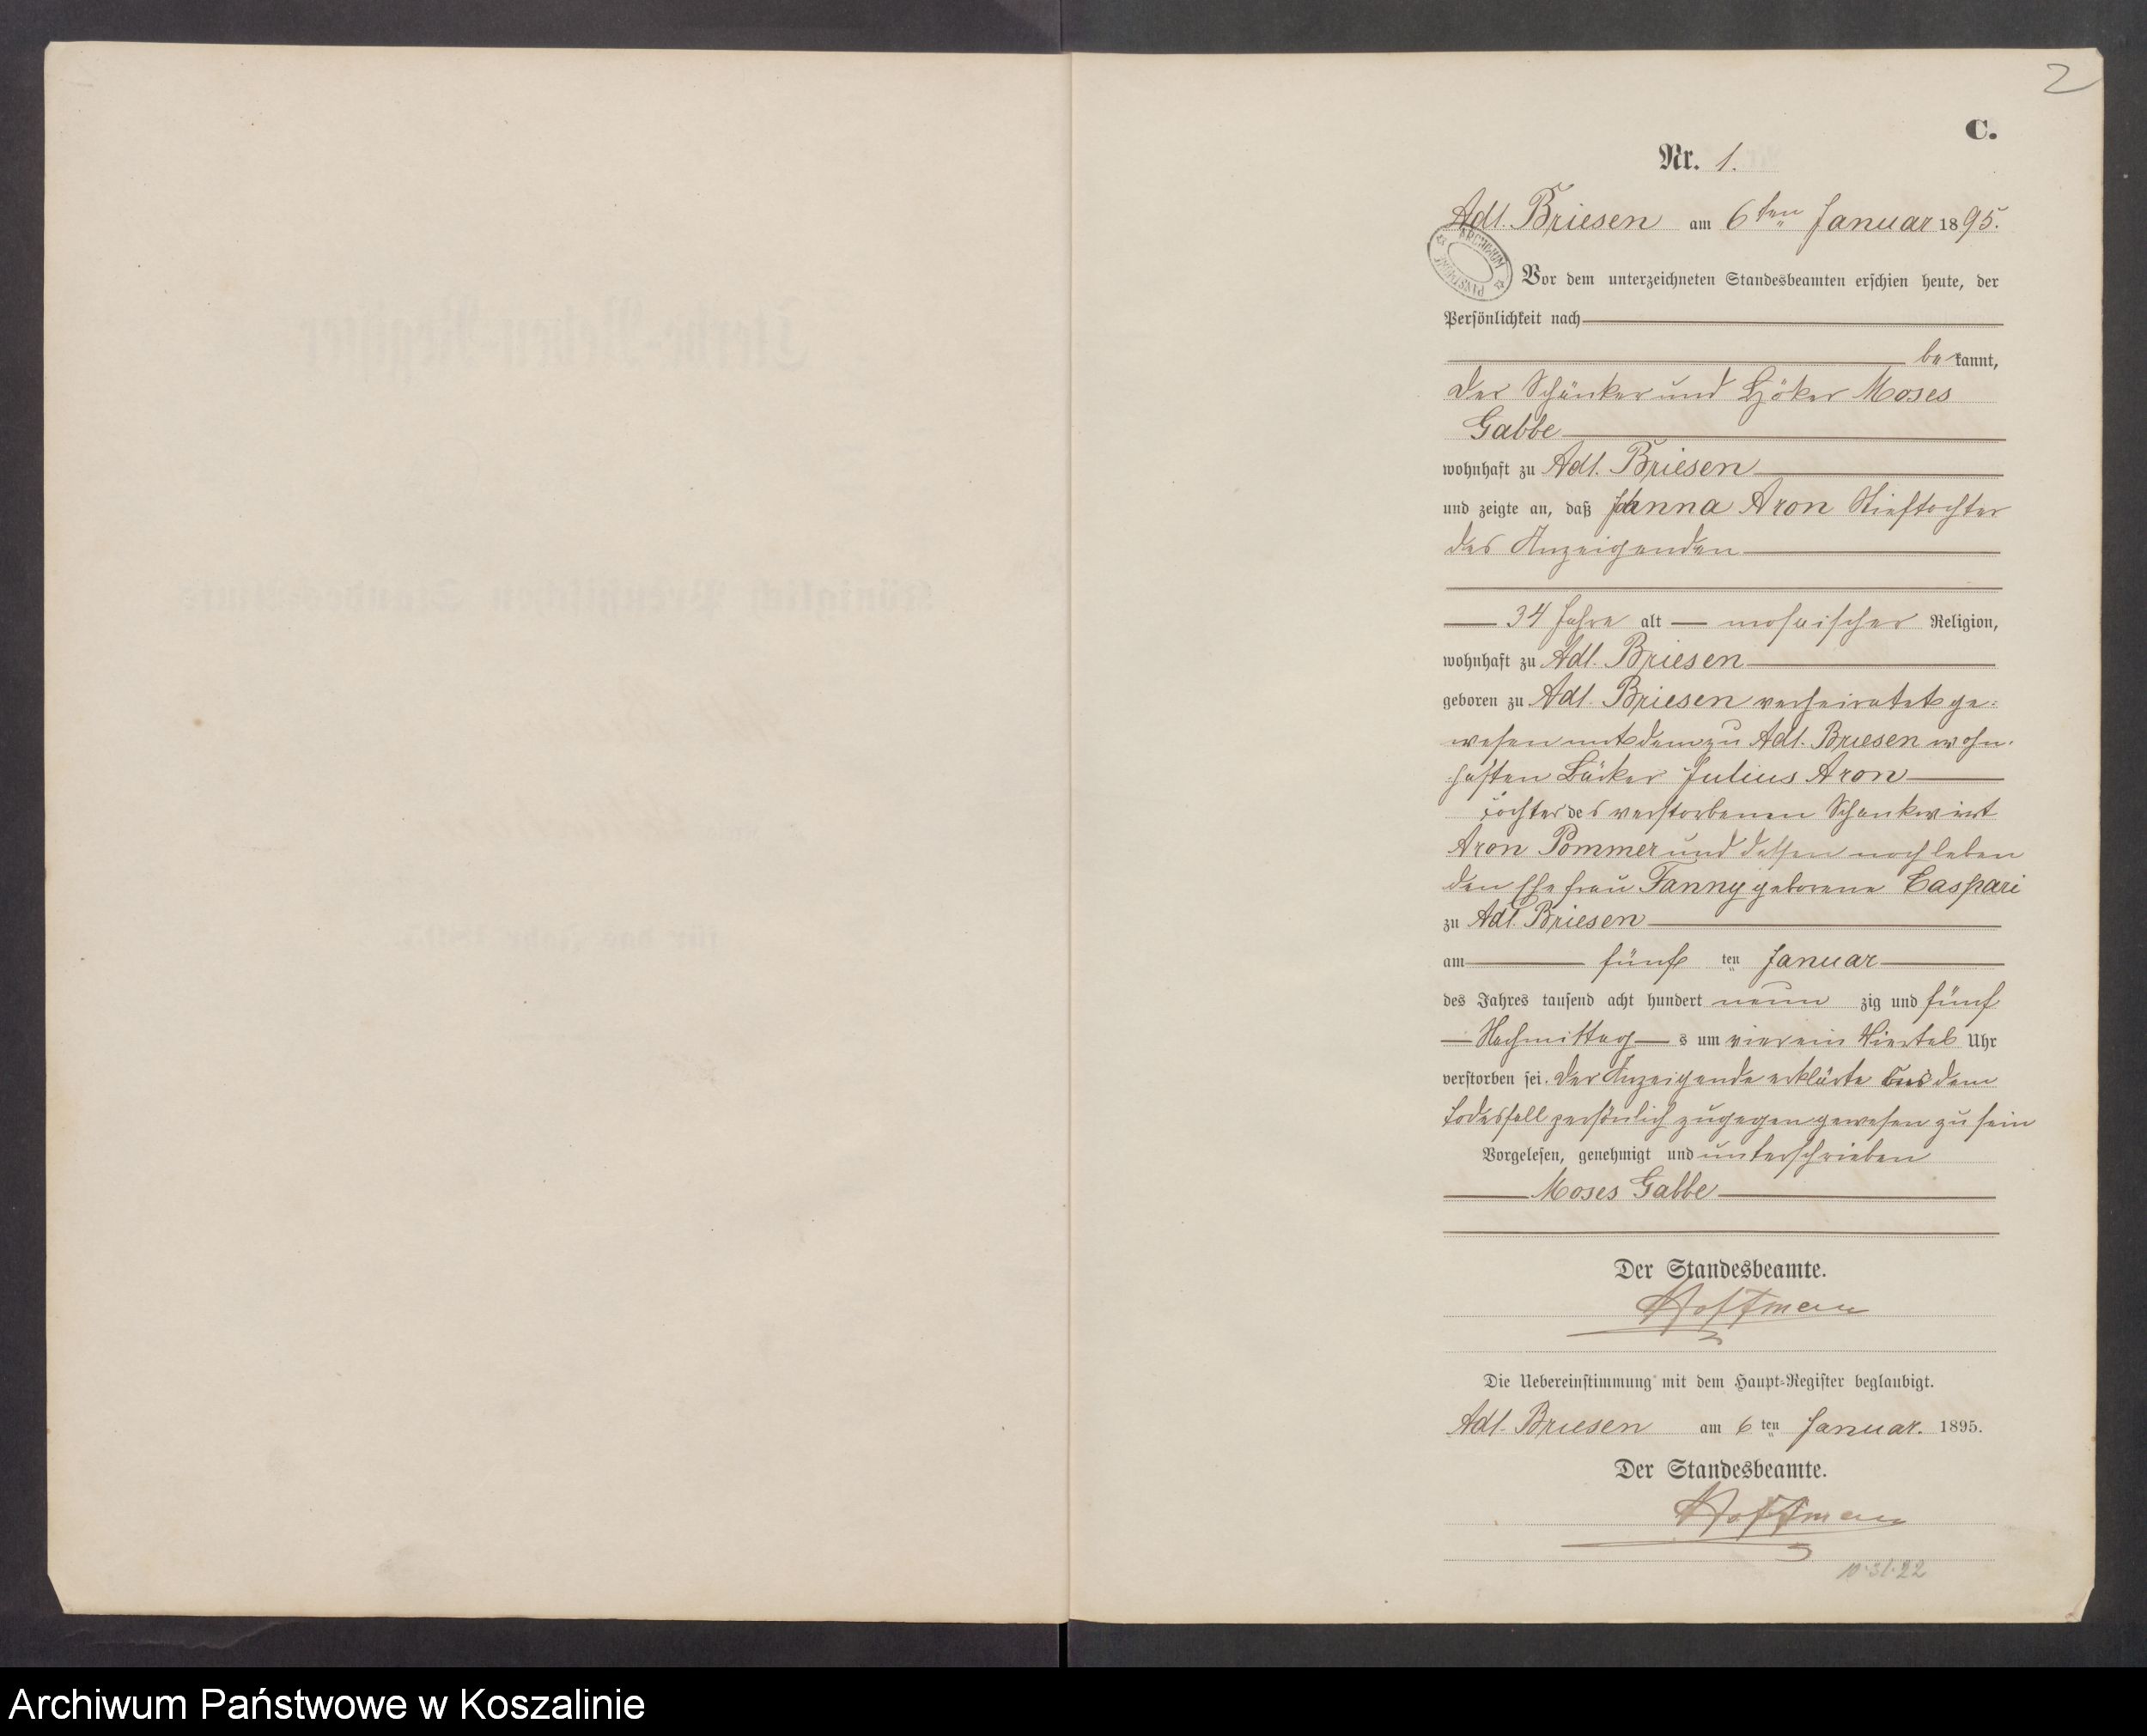 2
C.
Nr. 1.
Adl. Briesen am 6ten Januar 1895.
Vor dem unterzeichneten Standesbeamten erschien heute, der
Persönlichkeit nach
bekannt,
der Schänker und Höker Moses
Gabbe
wohnhaft zu Adl. Briesen
und zeigte an, daß Aron Stieftochter
des Anzeigenden
34 Jahre alt mosaischer Religion,
wohnhaft zu Adl. Briesen
geboren zu Adl. Briesen verheiratet ge-
wesen mit dem zu Adl. Briesen wohn-
haften Bäcker Julius Aron
Tochter des verstorbenen Schankwirt
Aron Pommer und dessen noch leben
den Ehefrau Fanny geborene Caspari
zu Adl. Briesen
am fünf ten Januar
des Jahres tausend acht hundert neun zig und fünf
Nachmittag s um vier ein Viertel Uhr
verstorben sei. Der Anzeigende erklärte dem
Todesfall persönlich zugegen gewesen zu sein
Vorgelesen, genehmigt und unterschrieben
Moses Gabbe
Der Standesbeamte.
Hoffman
Die Uebereinstimmung mit dem Haupt-Register beglaubigt.
Adl. Briesen am 6ten Januar. 1895.
Der Standesbeamte.
Hoffman
Archiwum Państwowe w Koszalinie